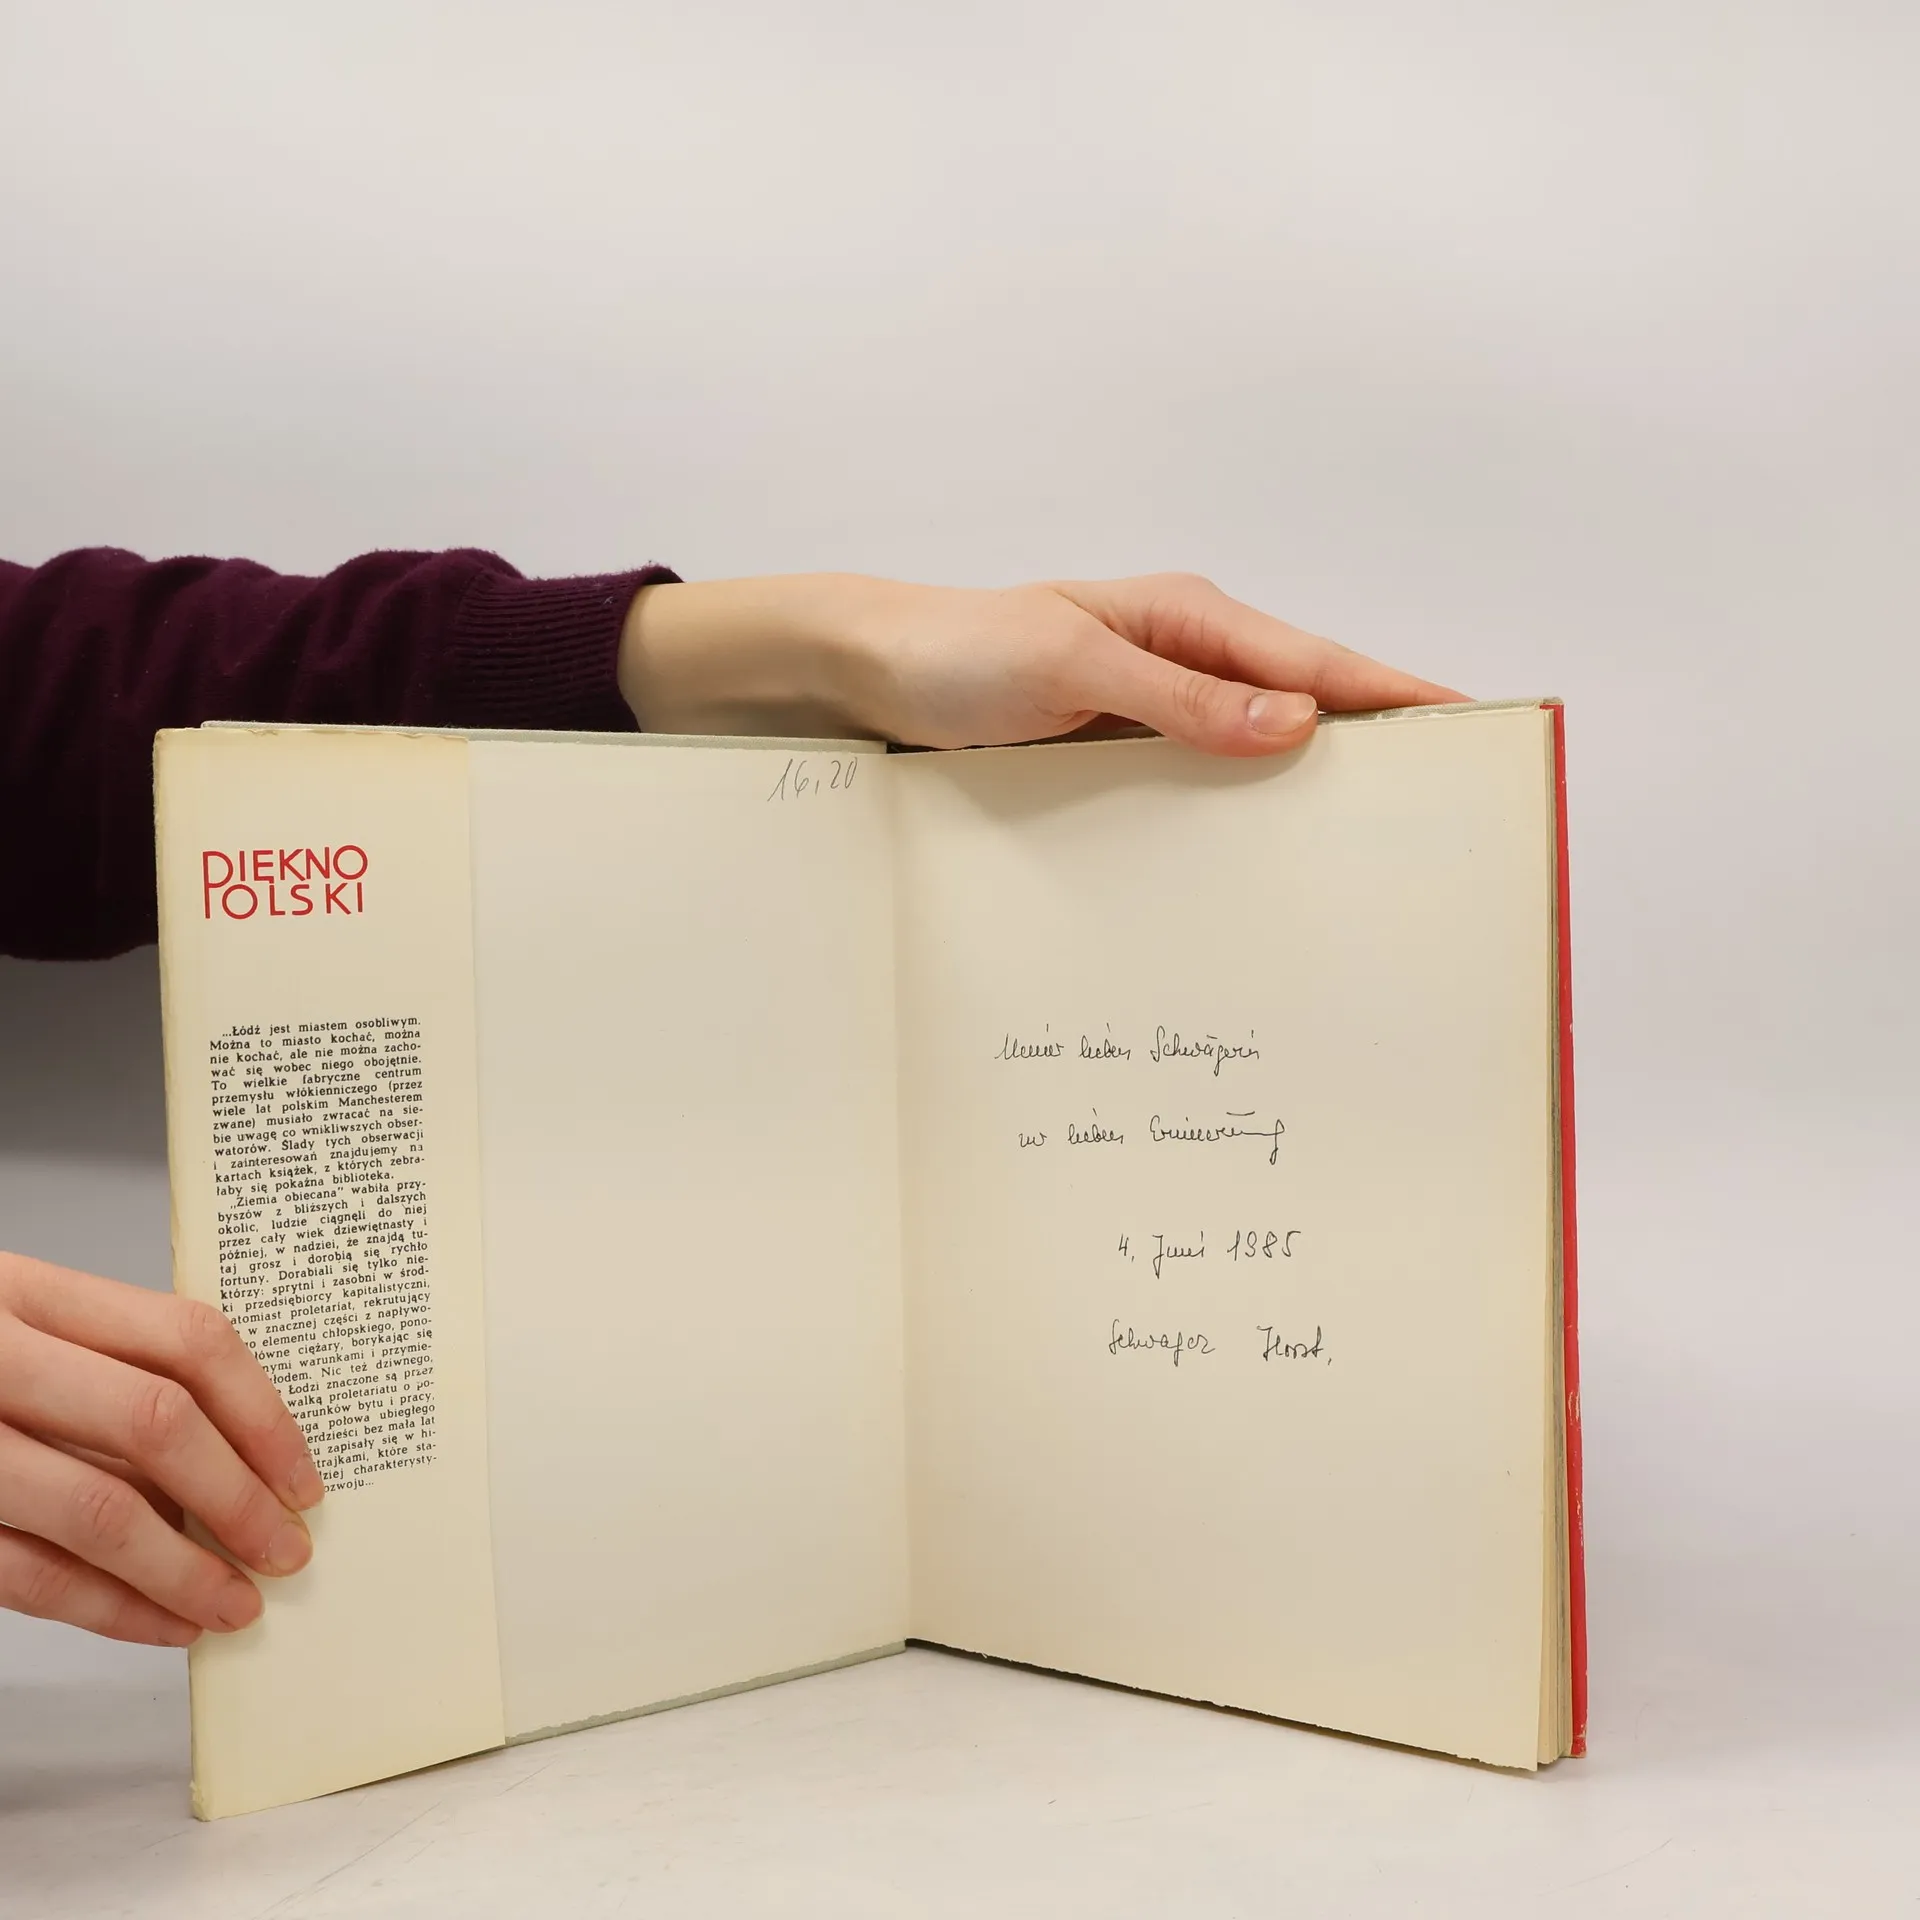 PIĘKNO
POLSKI
...Łódź jest miastem osobliwym.
Można to miasto kochać, można
nie kochać, ale nie można zacho-
wać się wobec niego obojętnie.
To wielkie fabryczne centrum
przemysłu włókienniczego (przez
wiele lat polskim Manchesterem
zwane) musiało zwracać na sie-
bie uwagę co wnikliwszych obser-
watorów. Ślady tych obserwacji
i zainteresowań znajdujemy na
kartach książek, z których zebra-
łaby się pokaźna biblioteka.
„Ziemia obiecana” wabiła przy-
byszów z bliższych i dalszych
okolic, ludzie ciągnęli do niej
przez cały wiek dziewiętnasty i
później, w nadziei, że znajdą tu-
taj grosz i dorobią się rychło
fortuny. Dorabiali się tylko nie-
którzy: sprytni i zasobni w środ-
ki przedsiębiorcy kapitalistyczni,
atomiast proletariat, rekrutujący
w znacznej części z napływo-
go elementu chłopskiego, pono-
łówne ciężary, borykając się
nymi warunkami i przymie-
łodem. Nic też dziwnego,
Łodzi znaczone są przez
walką proletariatu o po-
warunków bytu i pracy,
uga połowa ubiegłego
erdzieści bez mała lat
u zapisały się w hi-
trajkami, które sta-
dziej charakterysty-
ozwoju...
16,20
Meiner lieben Schwägerin
zur lieben Erinnerung
4. Juni 1985
Schwager Horst.